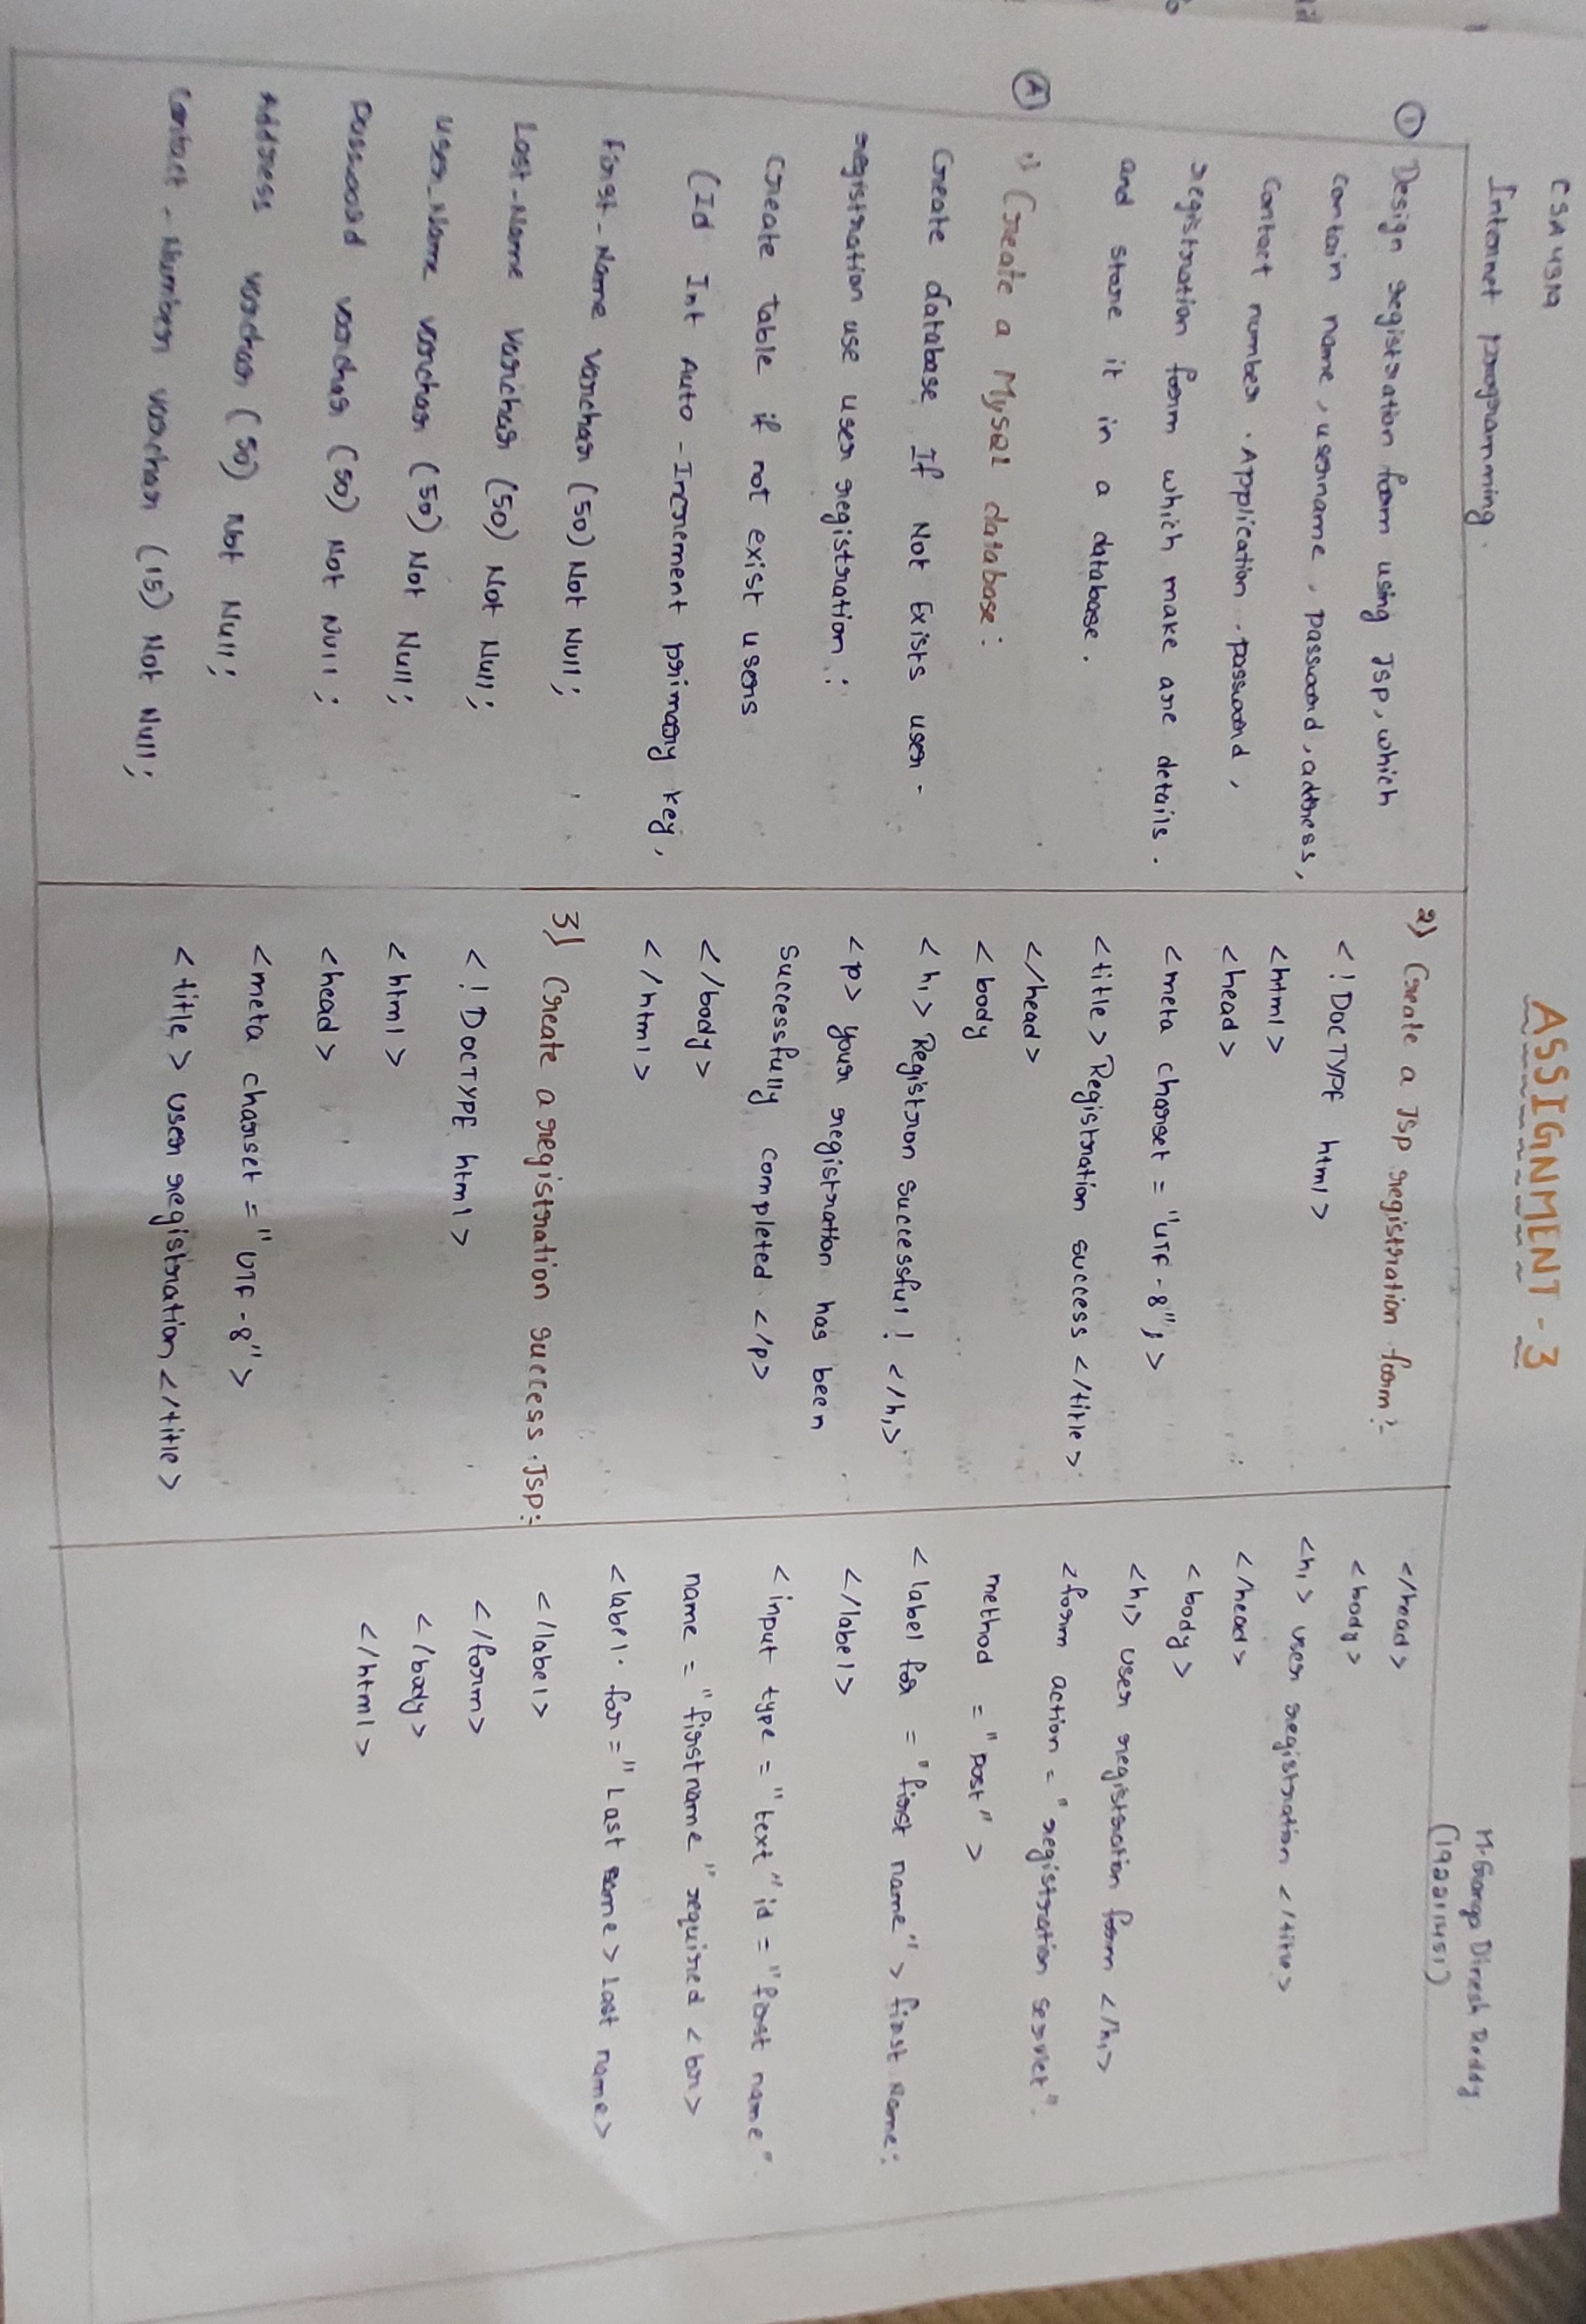 CSA 4319
Internet programming.
ASSIGNMENT - 3
Dinesh Reddy
① Design registration form using Jsp, which
contain name, username, password, address,
contact number. Application. password,
registration form which make are details.
and store it in a database.
Ⓐ 1) Create a MySQL database:
Create database If Not Exists user-
registration use user registration:
Create table if not exist users
(Id Int Auto-Increment primary key,
First-Name varchar (50) Not Null;
Last-Name varchar (50) Not Null;
User-Name varchar (50) Not Null;
password varchar (50) Not Null;
Address varchar (50) Not Null;
Contact-Number varchar (15) Not Null;
2) Create a Jsp registration form:-
<!DOCTYPE html>
<html>
<head>
<meta charset = "UTF-8";>
<title> Registration success </title>
</head>
<body
<h1> Registron successful! </h1>
<p> your registration has been
successfully completed. </p>
</body>
</html>
3) Create a registration success.JSP:-
<!DOCTYPE html>
<html>
<head>
<meta charset = "UTF-8">
<title> user registration </title>
</head>
<body>
<h1> user registration </title>
</head>
<body>
<h1> user registration form </h1>
<form action = "registration servlet".
method = "post">
<label for = "first name"> first Name:
</label>
<input type = "text" id = "first name".
name = "firstname" required <br>
<label for = "Last name> Last name>
</label>
</form>
</body>
</html>